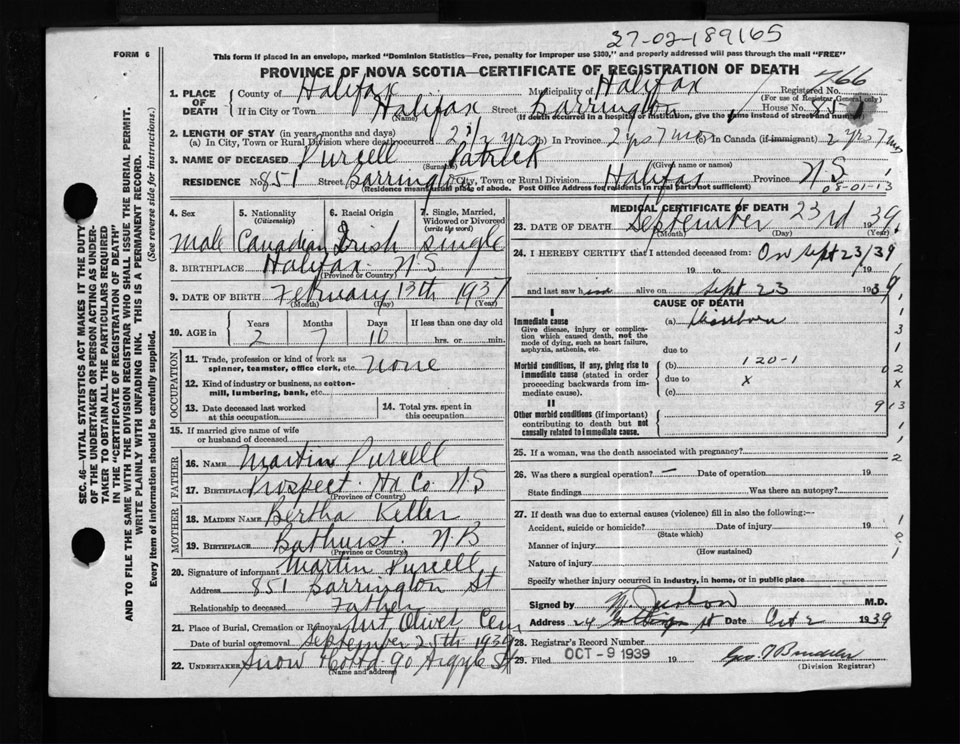 27-02-189165
FORM 6
This form if placed in an envelope, marked "Dominion Statistics—Free, penalty for improper use $300," and properly addressed will pass through the mail "FREE"
PROVINCE OF NOVA SCOTIA—CERTIFICATE OF REGISTRATION OF DEATH
766
1. PLACE OF DEATH County of Halifax Municipality of Halifax Registered No.
(For use of Registrar General only)
If in City or Town Halifax Street Barrington House No. 851
(Name) (If death occurred in a hospital or institution, give the name instead of street and number)
2. LENGTH OF STAY (in years, months and days)
(a) In City, Town or Rural Division where death occurred 2 7/12 yrs In Province 2 yrs 7 mos In Canada (if immigrant) 2 yrs 7 mos
3. NAME OF DECEASED Purcell Patrick
(Surname) (Given name or names)
RESIDENCE No. 851 Street Barrington City, Town or Rural Division Halifax Province N.S.
(Residence means usual place of abode. Post Office Address for residents in rural parts not sufficient)
08-01-13
4. Sex 5. Nationality (Citizenship) 6. Racial Origin 7. Single, Married, Widowed or Divorced (write the word)
Male Canadian Irish Single
8. BIRTHPLACE Halifax N.S.
(Province or Country)
9. DATE OF BIRTH February 13th 1937
(Month) (Day) (Year)
10. AGE in Years Months Days If less than one day old
2 7 10 hrs. or min.
OCCUPATION
11. Trade, profession or kind of work as spinner, teamster, office clerk, etc. none
12. Kind of industry or business, as cotton-mill, lumbering, bank, etc.
13. Date deceased last worked at this occupation
14. Total yrs. spent in this occupation
15. If married give name of wife or husband of deceased
FATHER
16. NAME Martin Purcell
17. BIRTHPLACE Prospect Hx Co N.S
(Province or Country)
MOTHER
18. MAIDEN NAME Bertha Keller
19. BIRTHPLACE Bathurst N B
(Province or Country)
20. Signature of informant Martin Purcell
Address 851 Barrington St
Relationship to deceased Father
21. Place of Burial, Cremation or Removal Mt Olivet Cem
Date of burial or removal September 25th 1939
22. Undertaker Snow & Co Ltd 90 Argyle St
(Name and address)
MEDICAL CERTIFICATE OF DEATH
23. DATE OF DEATH September 23rd 1939
(Month) (Day) (Year)
24. I HEREBY CERTIFY that I attended deceased from: On Sept 23/39
19 to 19
and last saw him alive on Sept 23 1939
CAUSE OF DEATH
I
Immediate cause
Give disease, injury or complication which caused death, not the mode of dying, such as heart failure, asphyxia, asthenia, etc.
(a)
due to
Morbid conditions, if any, giving rise to immediate cause (stated in order proceeding backwards from immediate cause)
(b) 120-1
due to x
(c)
II
Other morbid conditions (if important) contributing to death but not causally related to immediate cause.
25. If a woman, was the death associated with pregnancy?
26. Was there a surgical operation? — Date of operation 19
State findings Was there an autopsy?
27. If death was due to external causes (violence) fill in also the following:—
Accident, suicide or homicide? Date of injury 19
(State which)
Manner of injury
(How sustained)
Nature of injury
Specify whether injury occurred in industry, in home, or in public place
Signed by M.D.
Address 24 St Date Oct 2 1939
28. Registrar's Record Number
29. Filed OCT - 9 1939 19
(Division Registrar)
SEC. 46—VITAL STATISTICS ACT MAKES IT THE DUTY
OF THE UNDERTAKER OR PERSON ACTING AS UNDER-
TAKER TO OBTAIN ALL THE PARTICULARS REQUIRED
IN THE "CERTIFICATE OF REGISTRATION OF DEATH"
AND TO FILE THE SAME WITH THE DIVISION REGISTRAR WHO SHALL ISSUE THE BURIAL PERMIT.
WRITE PLAINLY WITH UNFADING INK. THIS IS A PERMANENT RECORD.
Every item of information should be carefully supplied. (See reverse side for instructions.)